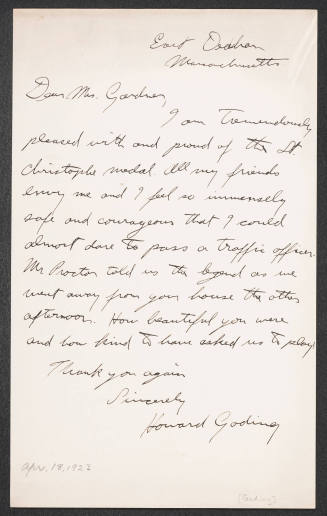 East Dedham
Massachusetts
Dear Mrs. Gardner,
I am tremendously
pleased with and proud of the St.
Christophe medal. All my friends
envy me and I feel so immensely
safe and courageous that I could
almost dare to pass a traffic officer.
Mr Proctor told us the legend as we
went away from your house the other
afternoon. How beautiful you were
and how kind to have asked us to play
Thank you again
Sincerely
Howard Goding
Apr. 18, 1923